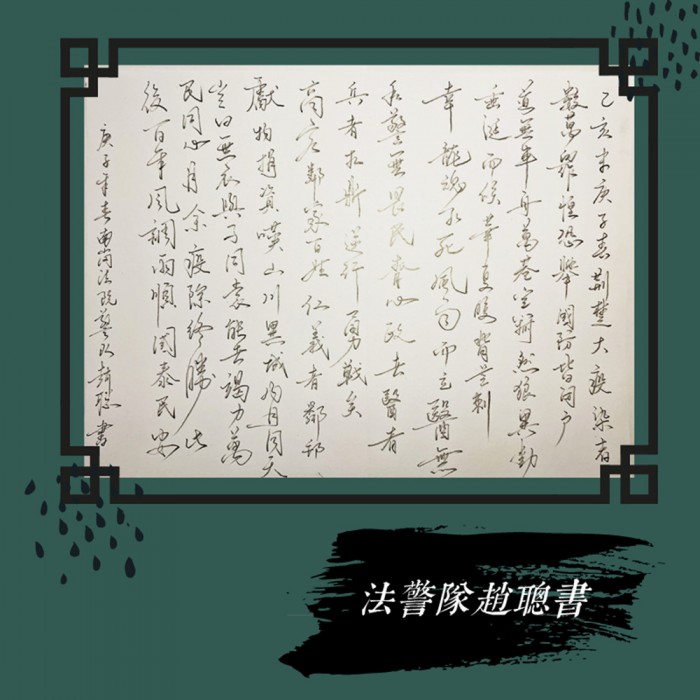 己亥末庚子春荆楚大疫染者
數萬眾惶恐舉國防皆閉戶
道無車舟萬巷空寂然狼異動
垂涎而候華夏腹背芒刺
幸龍魂不死風雨而立醫無
私警無畏民齊心政者醫者
兵者扛鼎逆行勇戰矣
商客鄰家百姓仁義者鄰邦
獻物捐資嘆山川異域風月同天
豈曰無衣與子同裳能者竭力萬
民同心月余疫除終勝此
後百年風調雨順國泰民安
庚子年春南崗法院警隊趙聰書
法警隊趙聰書